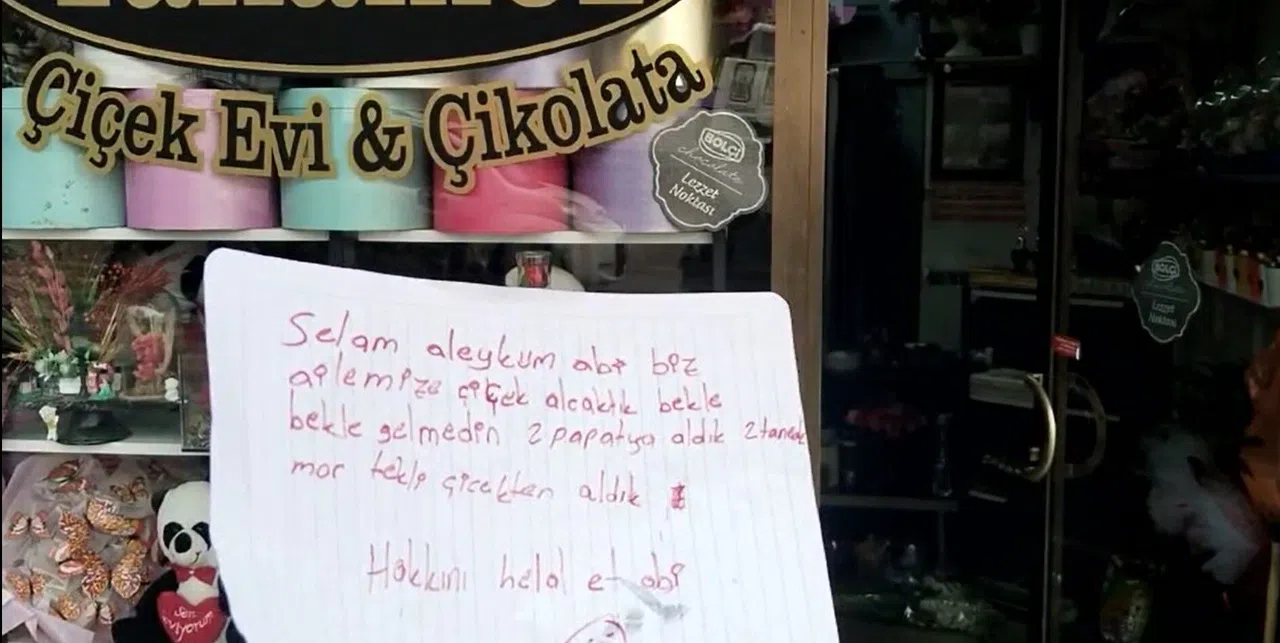 Çiçek Evi & Çikolata
BOLÇİ
chocolate
Lezzet
Noktası
BOLÇİ
Lezzet
Noktası
Selam aleykum abi biz
ailemize çiçek alcaktık bekle
bekle gelmeden 2 papatya aldık 2 tanede
mor tekli çicekten aldık
Hakkını helal et abi
Seni
seviyorum